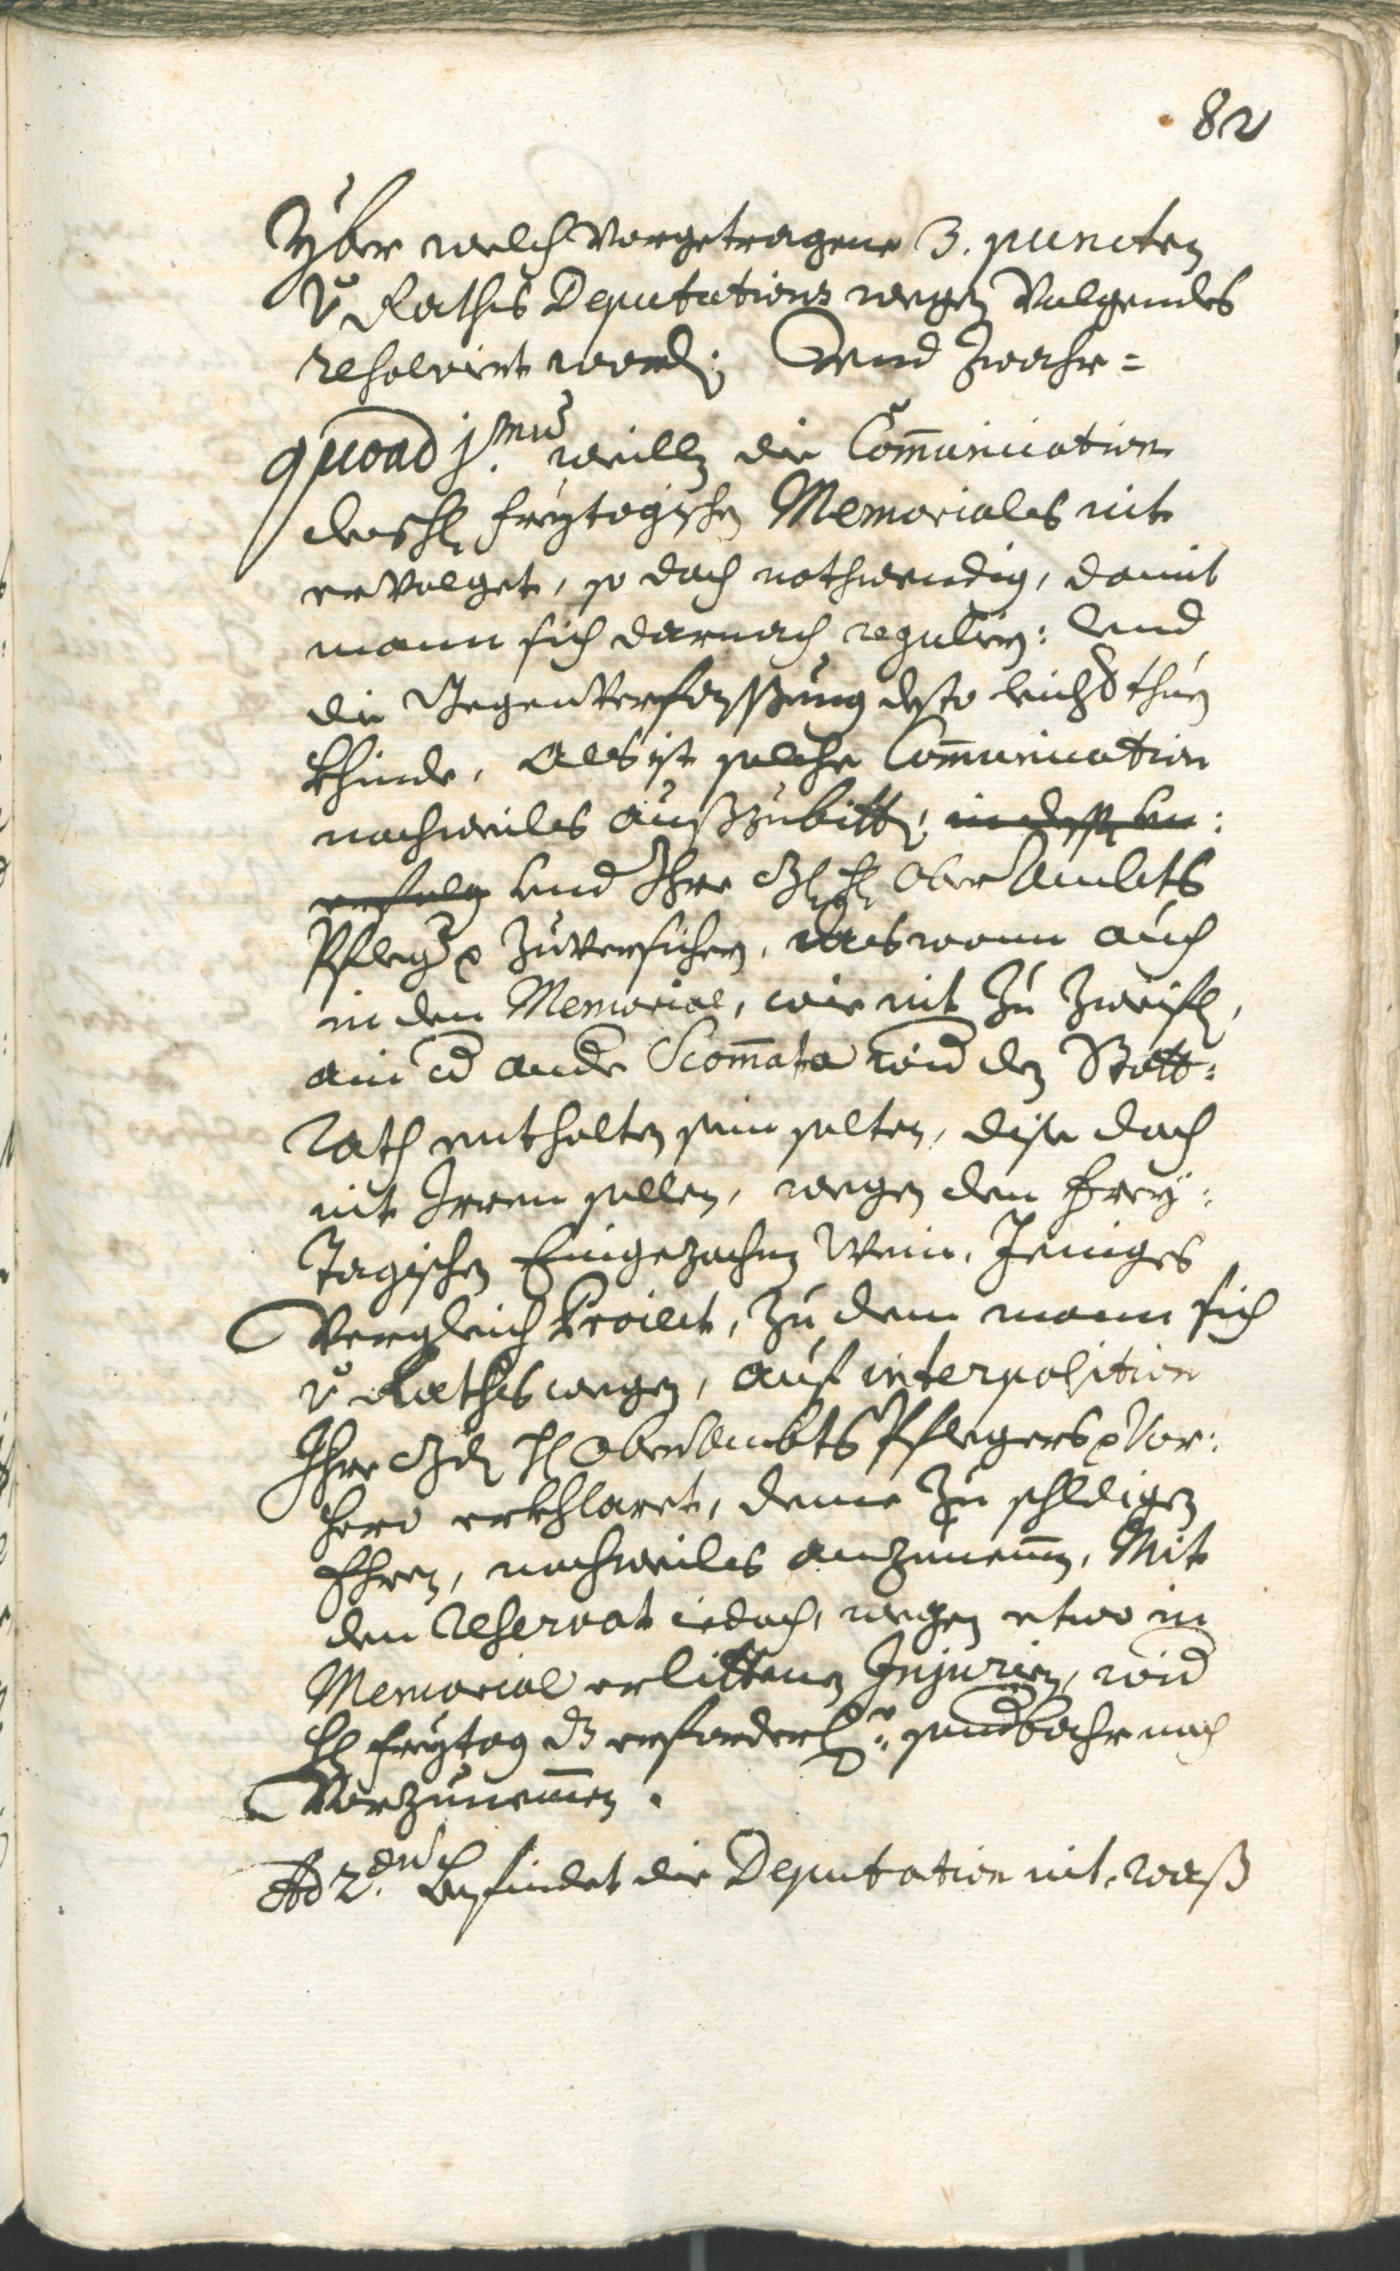 82
Yber welch Vorgetragene 3. puncten
v. Raths Deputations wegen Volgendes
resolvirt word: Vnd zwahr=
quoad 1.mu weillen die Com̄unication
des H: freytagischen Memoriales nit
ervolget, so doch nothwendig, damit
mann sich darnach regulirn: vnd
die Gegenverfassung desto leichter thuen
khinde. Als ist solche Com̄unication
nachmales außzubitten, in dessen :
erfolg vnd Ihre H: Ober Ambts
Pfleger zuversichern, das wann auch
in dem Memorial, wie nit zu zweiflen,
ain vnd andere Scom̄ata wider den Statt=
Rath enthalten sein solten, dise doch
nit Irren sollen, wegen dem frey=
tagischen Eingezognen Wein. Jeniges
Vergleich Proiect, zu dem mann sich
v. Raths wegen, auf interposition
Ihre H: OberAmbts Pflegers Vor:
hero erkhlaret, deme zu schuldigen
Ehren, nachmales anzunem̄en, Mit
dem reservat iedoch, wegen etwo in
Memorial erlittenen Injurien, wider
H: freytag dz erforderliche sonderbahr nach
Vorzunem̄en.
Ad 2.dum befindet die Deputation nit, waß